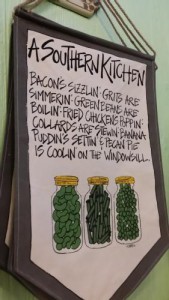 A SOUTHERN KITCHEN
BACON'S SIZZLIN' · GRITS ARE
SIMMERIN' · GREEN BEANS ARE
BOILIN' · FRIED CHICKEN'S POPPIN' ·
COLLARDS ARE STEWIN' · BANANA
PUDDIN'S SETTIN' & PECAN PIE
IS COOLIN' ON THE WINDOWSILL.